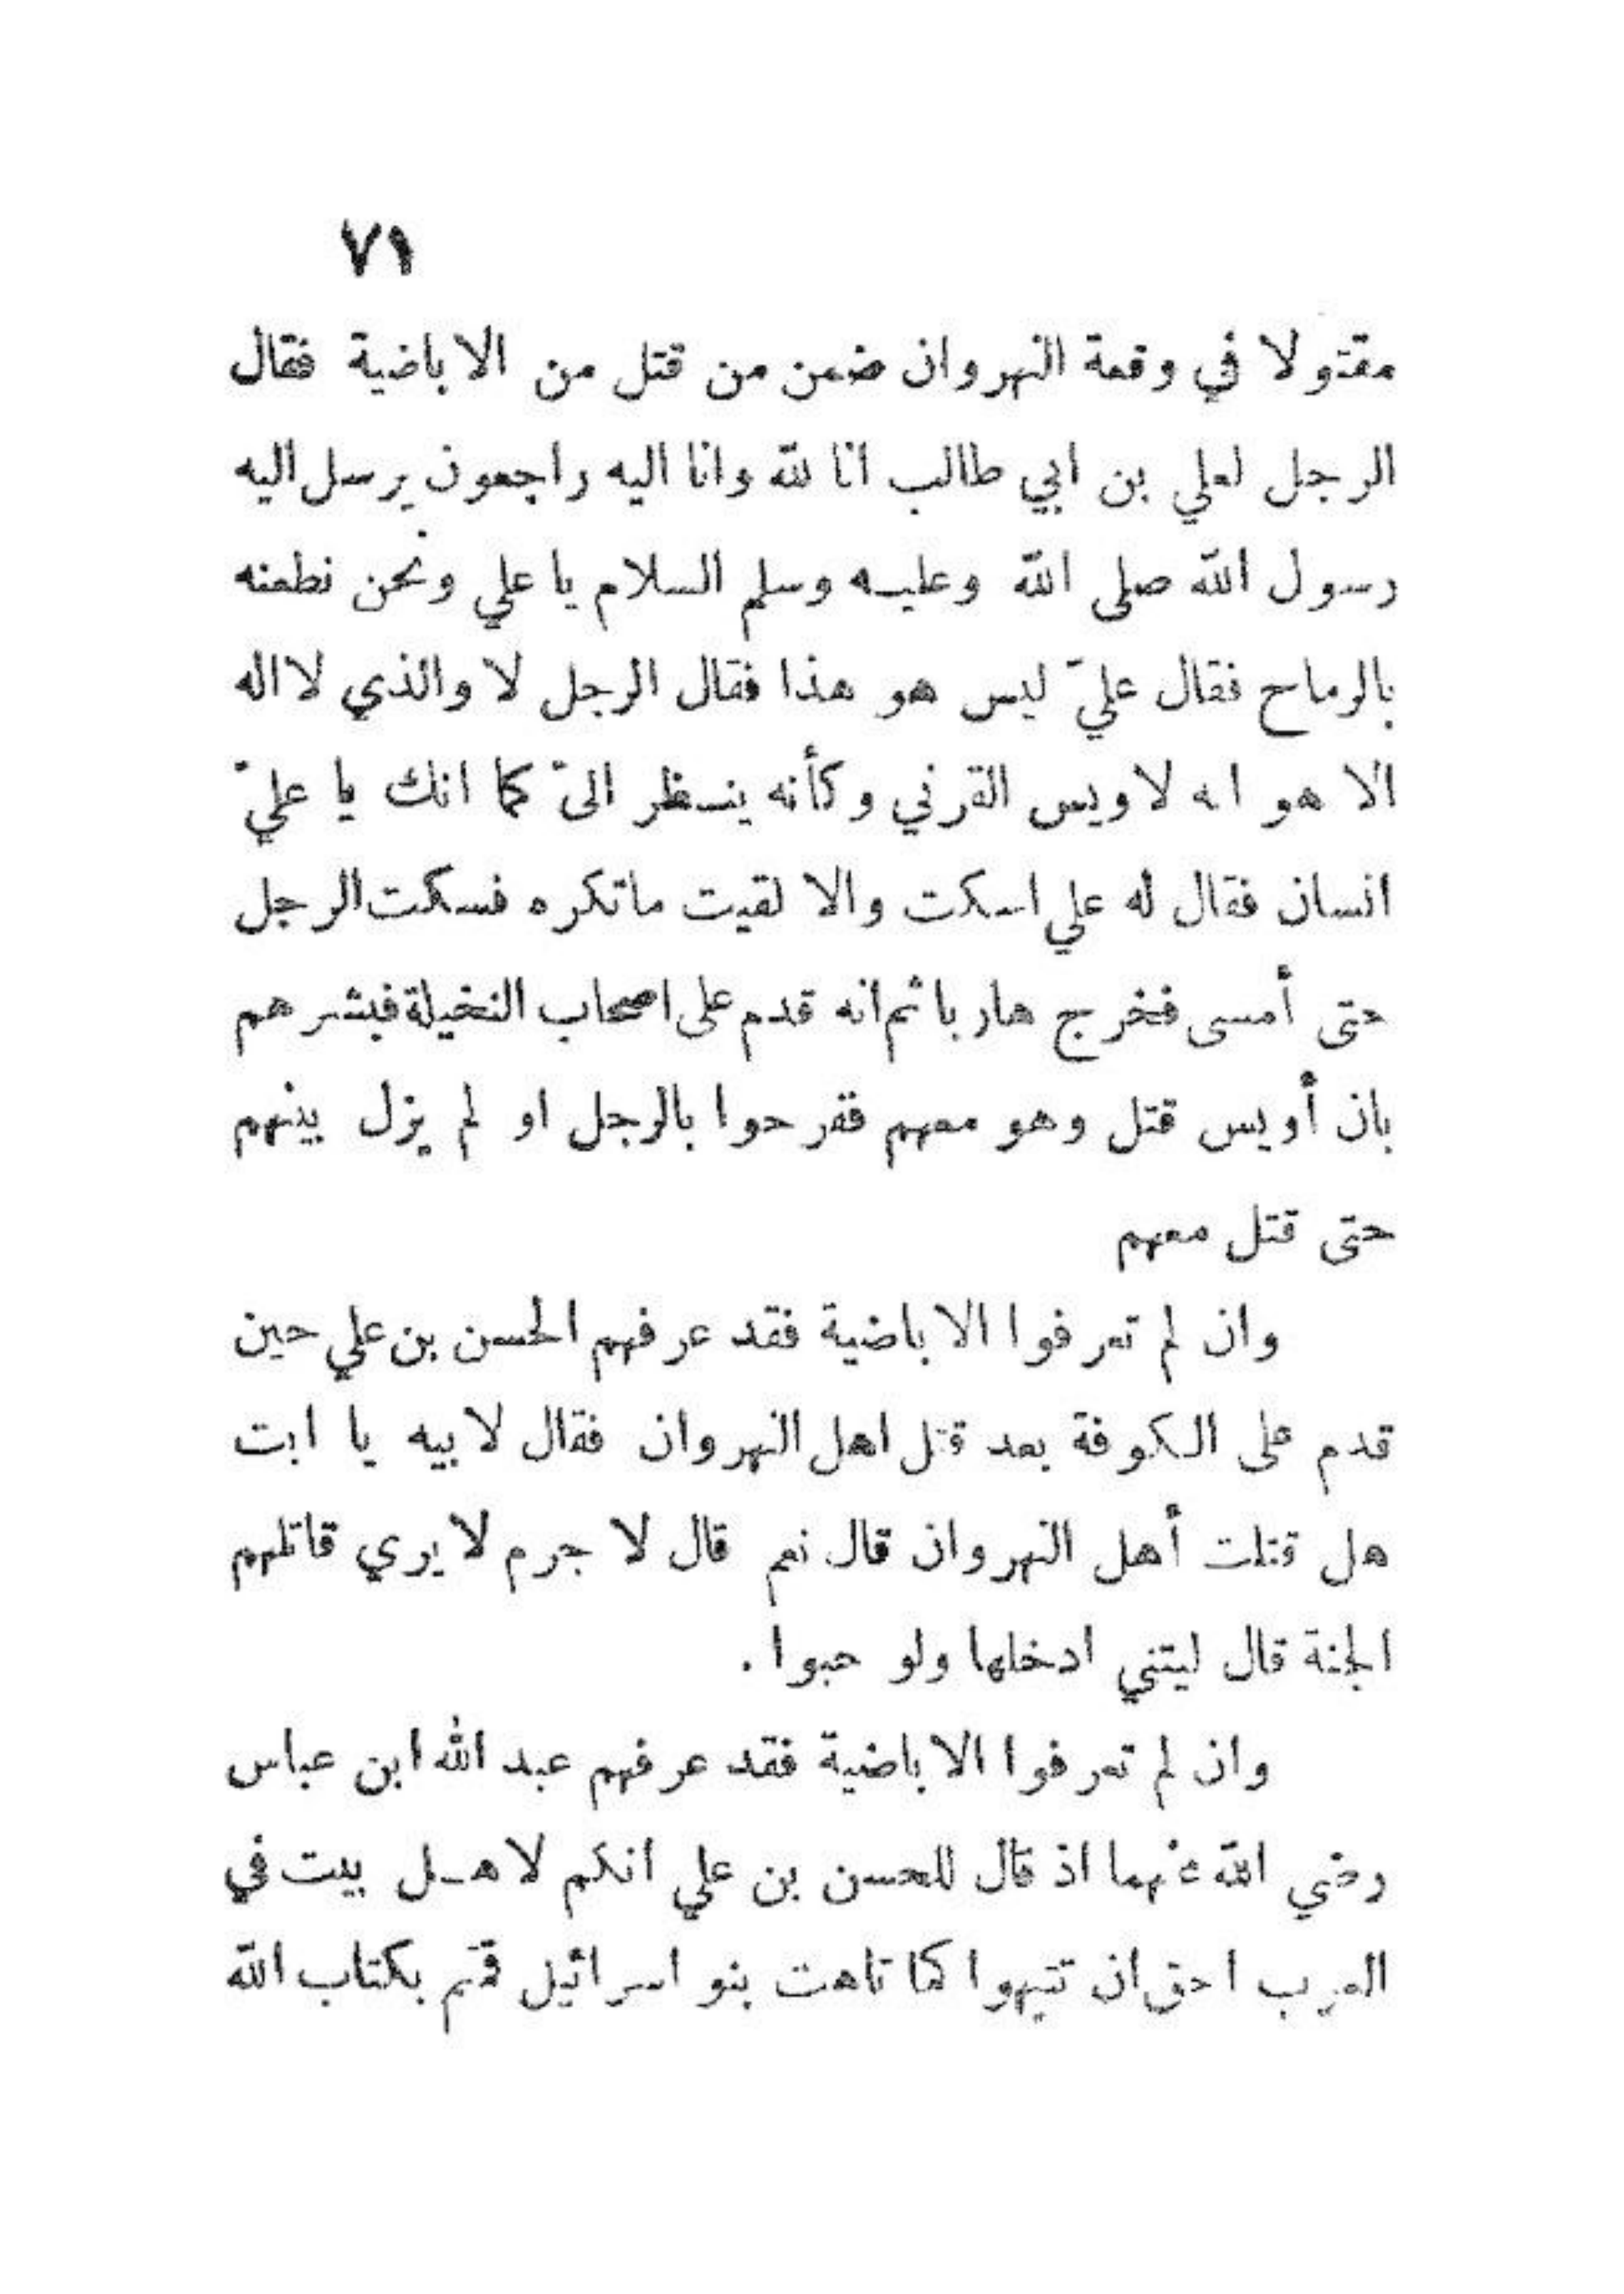 ٧١
مقتولا في وقعة النهروان ضمن من قتل من الاباضية فقال
الرجل لعلي بن ابي طالب انا لله وانا اليه راجعون يرسل اليه
رسول الله صلى الله وعليه وسلم السلام يا علي ونحن نطعنه
بالرماح فقال عليّ ليس هو هذا فقال الرجل لا والذي لا اله
الا هو انه لاويس القرني وكأنه ينظر الىّ كما انك يا عليّ
انسان فقال له علي اسكت والا لقيت ماتكره فسكت الرجل
حتى أمسى فخرج هاربا ثم انه قدم على اصحاب النخيلة فبشرهم
بان أويس قتل وهو معهم ففرحوا بالرجل او لم يزل بينهم
حتى قتل معهم
وان لم تعرفوا الاباضية فقد عرفهم الحسن بن علي حين
قدم على الكوفة بعد قتل اهل النهروان فقال لابيه يا ابت
هل قتلت أهل النهروان قال نعم قال لا جرم لا يري قاتلهم
الجنة قال ليتني ادخلها ولو حبوا .
وان لم تعرفوا الاباضية فقد عرفهم عبد الله ابن عباس
رضي الله عنهما اذ قال للحسن بن علي انكم لاهل بيت في
العرب احق ان تتيهوا كما تاهت بنو اسرائيل قمتم بكتاب الله